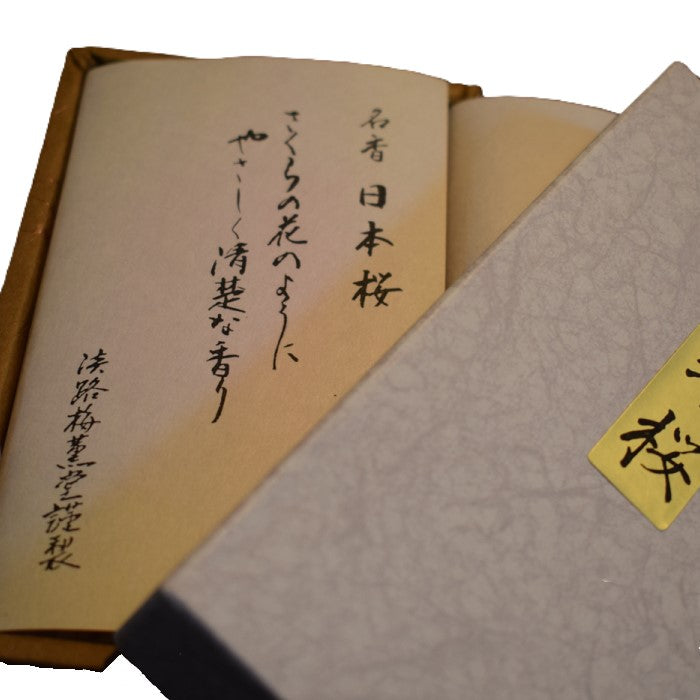 名香 日本桜
さくらの花のように
やさしく清楚な香り
淡路梅薫堂謹製
桜